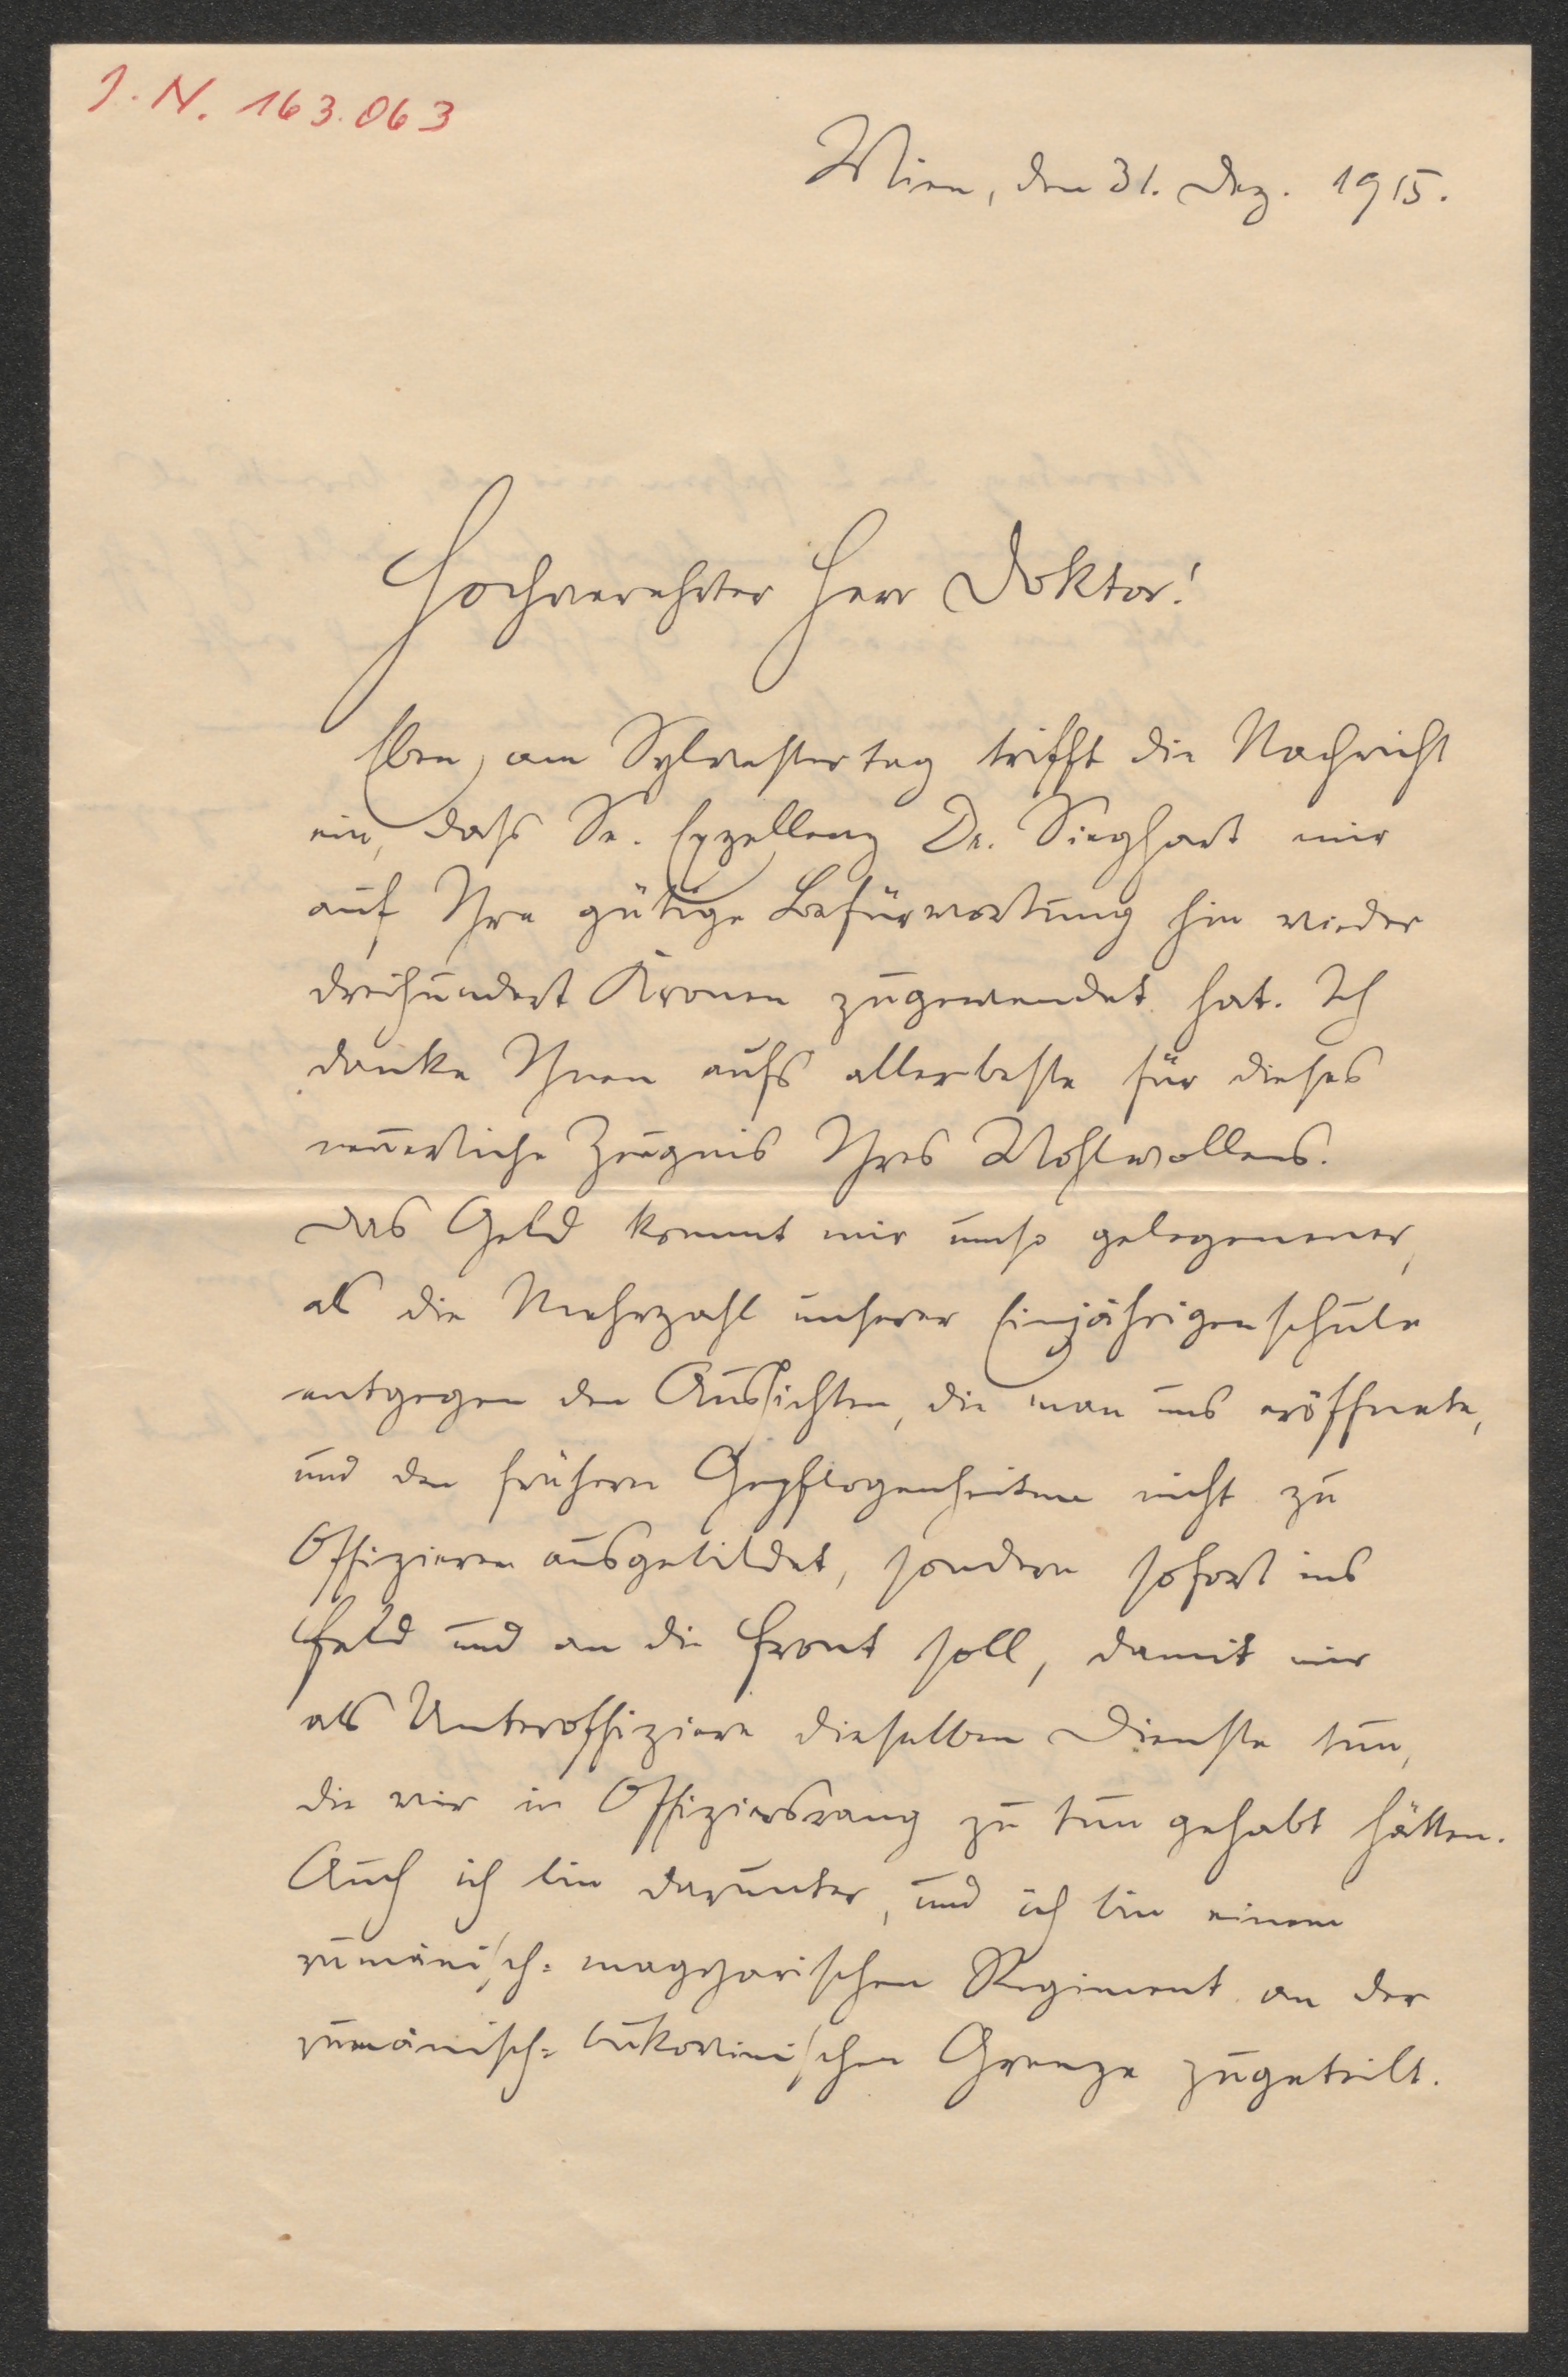 J. N. 163.063
Wien, den 31. Dez. 1915.
Hochverehrter Herr Doktor!
Eben, am Sylvestertag trifft die Nachricht
ein, dass Se. Exzellenz Dr. Sieghart mir
auf Ihre gütige Befürwortung hin wieder
dreihundert Kronen zugewendet hat. Ich
danke Ihnen aufs allerbeste für dieses
neuerliche Zeugnis Ihres Wohlwollens.
Das Geld kommt mir umso gelegenener,
als die Mehrzahl unserer Einjährigenschule
entgegen den Aussichten, die man uns eröffnete,
und den frühern Gepflogenheiten nicht zu
Offizieren ausgebildet, sondern sofort ins
Feld und an die Front soll, damit wir
als Unteroffiziere dieselben Dienste tun,
die wir in Offiziersrang zu tun gehabt hätten.
Auch ich bin darunter, und ich bin einem
rumänisch-magyarischen Regiment an der
rumänisch-bukowinischen Grenze zugeteilt.